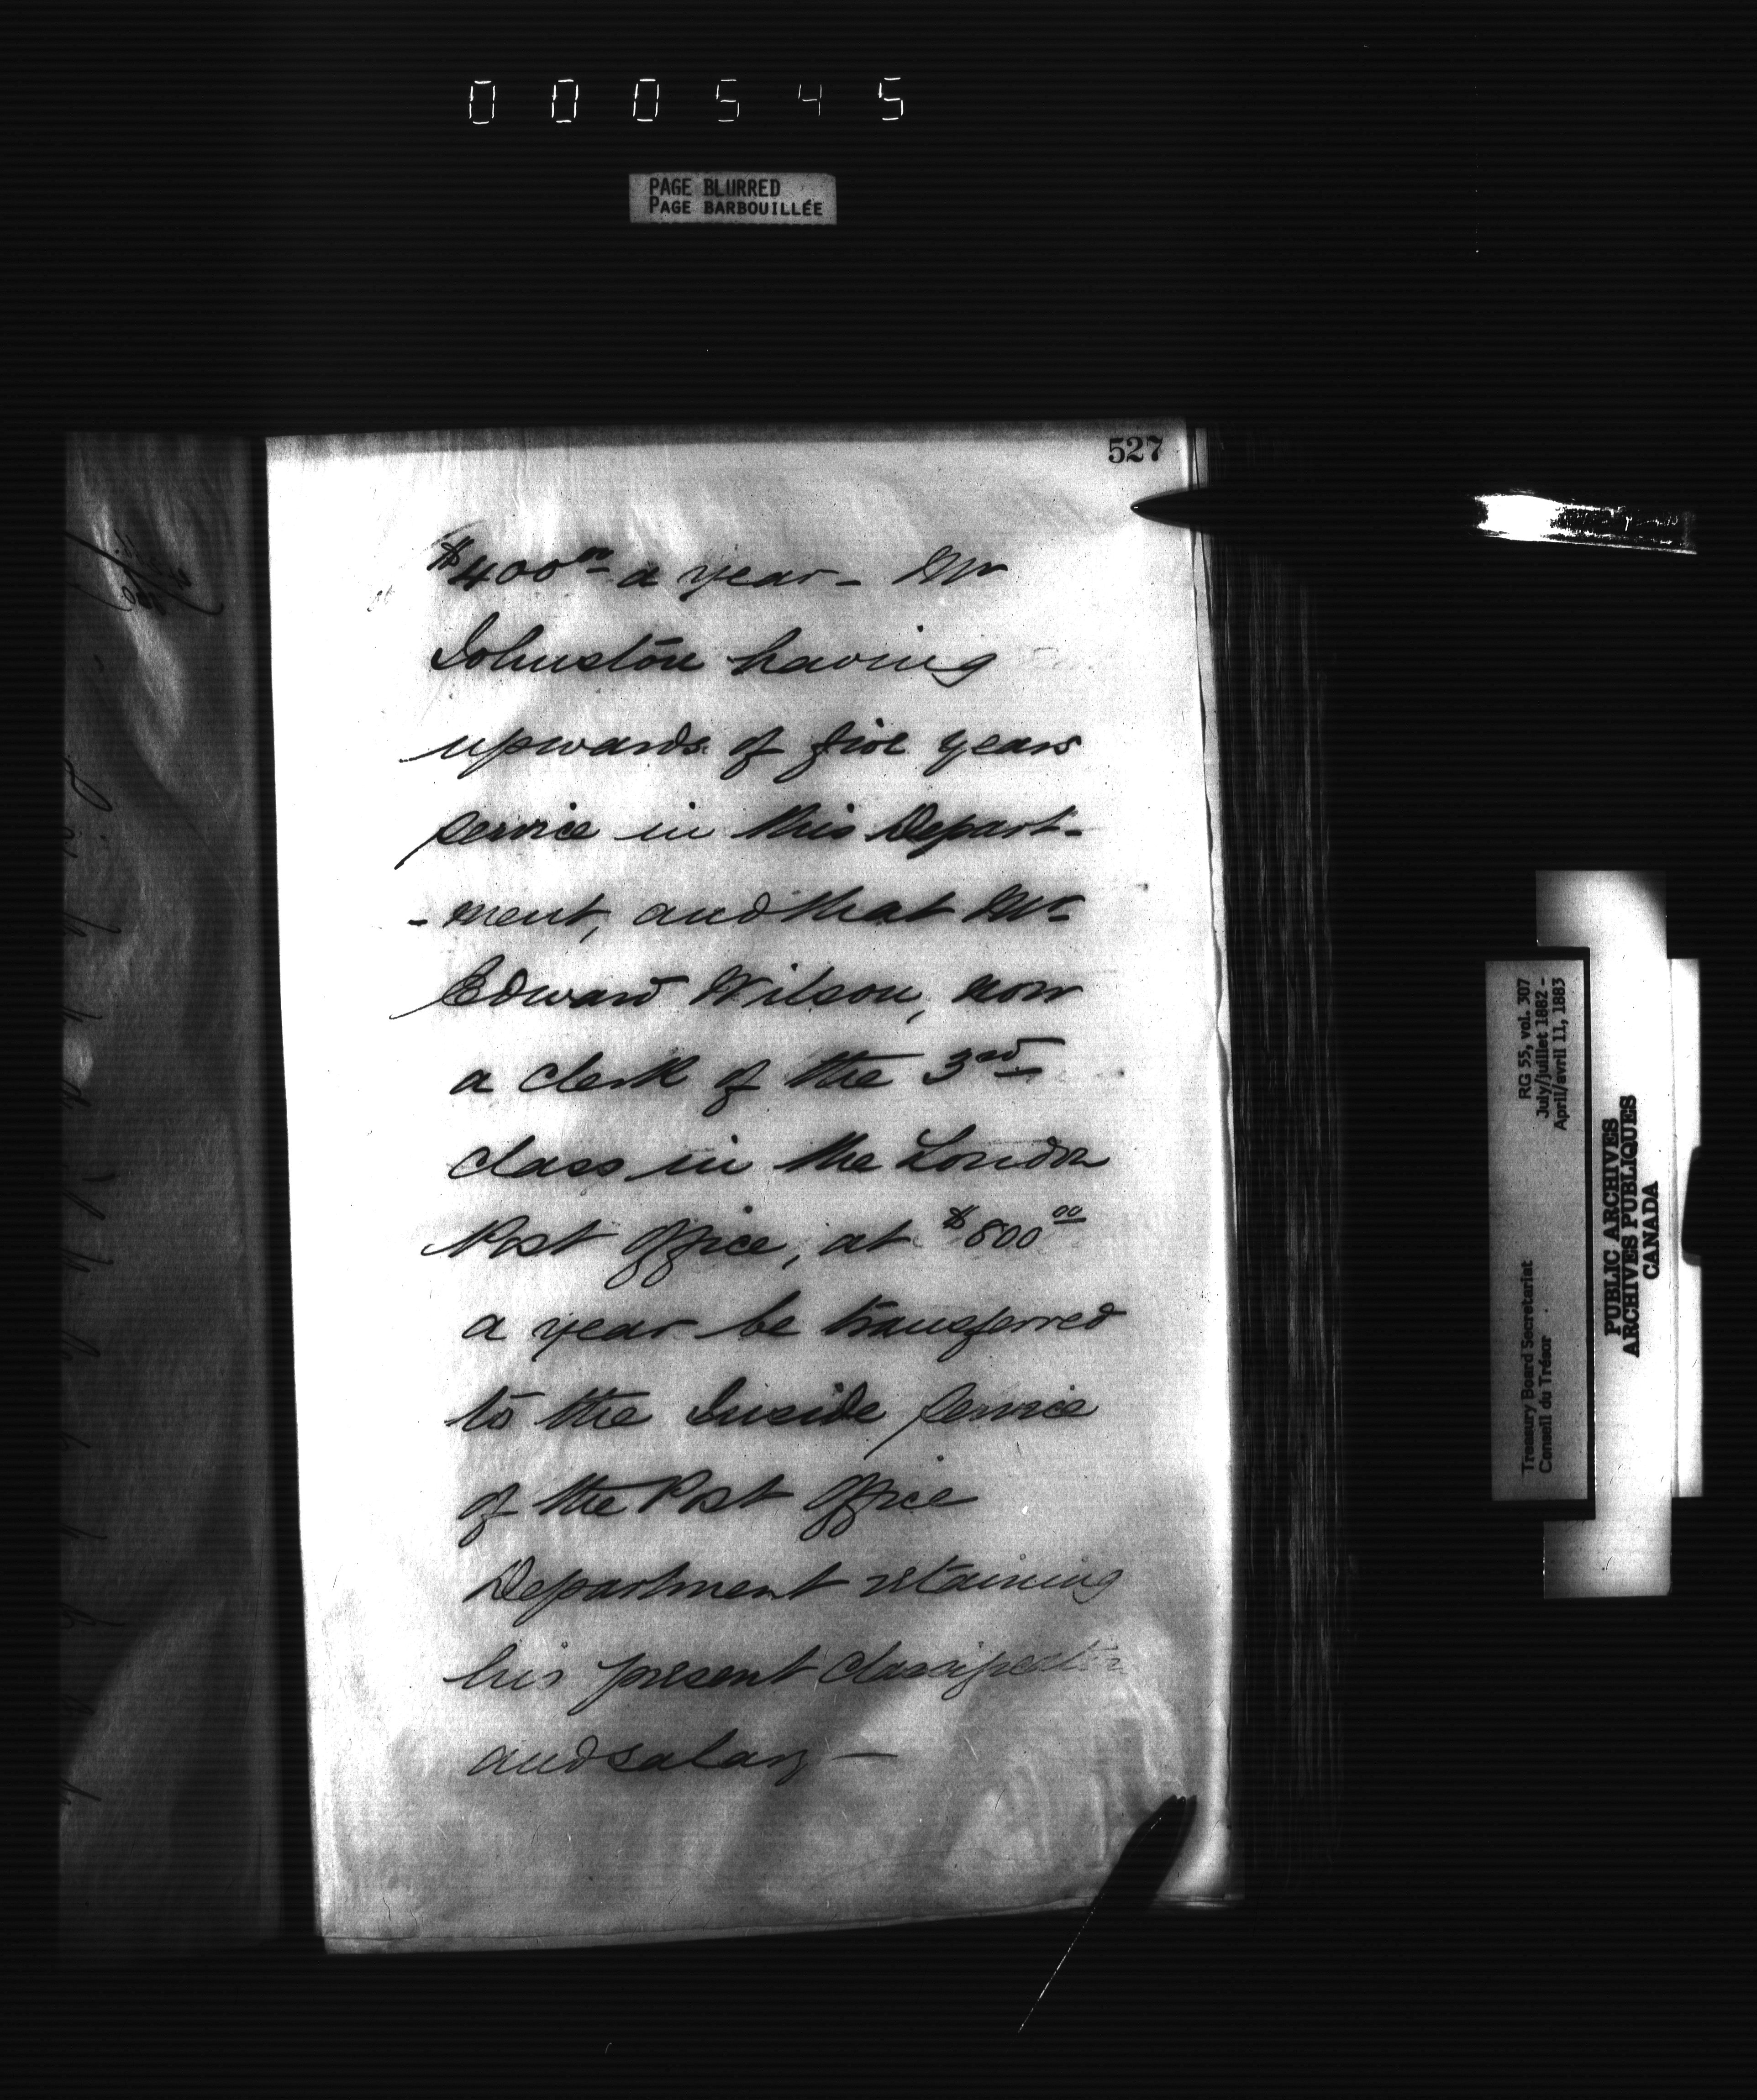 000545
PAGE BLURRED
PAGE BARBOUILLÉE
527
$400 00 a year - Mr
Johnston having
upwards of five years
service in this Depart-
-ment, and that Mr
Edward Wilson, now
a clerk of the 3rd
class in the London
Post Office, at $800 00
a year be transferred
to the Inside Service
of the Post Office
Department retaining
his present classification
and salary —
RG 55, vol. 307
July/juillet 1882 -
April/avril 11, 1883
Treasury Board Secretariat
Conseil du Trésor
PUBLIC ARCHIVES
ARCHIVES PUBLIQUES
CANADA